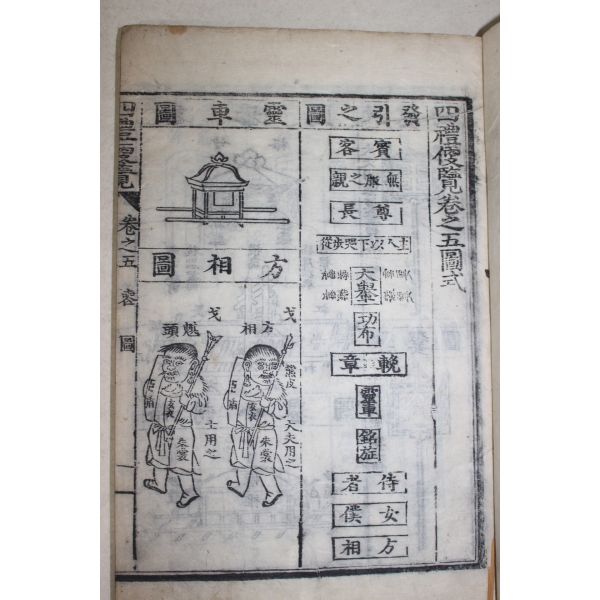 四禮便覽卷之五圖式
發引之圖
賓客
無服之親
尊長
主人以下哭步從
大轝
功布
輓章
靈車
銘旌
侍者
女僕
方相
靈車圖
方相圖
戈
方相
熊皮
朱裳
大夫用之
戈
魌頭
朱裳
士用之
四禮便覽
卷之五
喪
圖